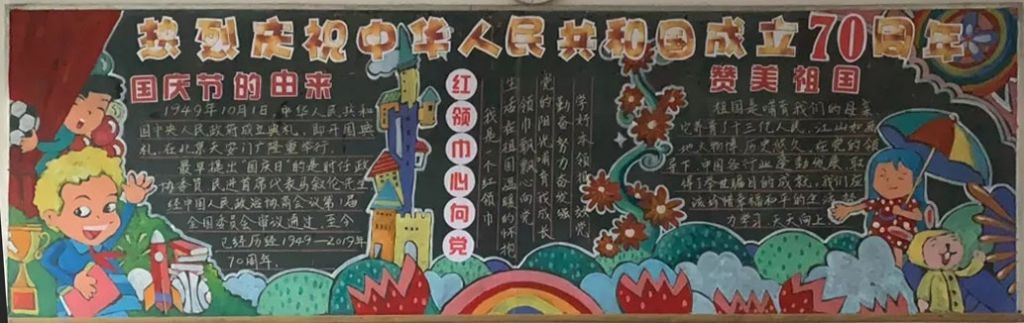 热烈庆祝中华人民共和国成立70周年
国庆节的由来
1949年10月1日 中华人民共和
国中央人民政府成立典礼,即开国典
礼在北京天安门广隆重举行
最早提出"国庆日"的是时任政
协委员民进首席代表马叙伦先生
经中国人民政治协商会议第一届
全国委员会审议通过至今
已经历经1949—2019年
70周年.
红领巾心向党
我是小小红领巾
生活在祖国温暖的怀抱
领巾飘飘心向党
党的阳光哺育我成长
勤奋努力奋发强
学好本领
赞美祖国
祖国是哺育我们的母亲
十三亿人民
地大物博历史悠久,在党的领
导下中国各行业
得了举世瞩目的成就,我们
力学习,天天向上